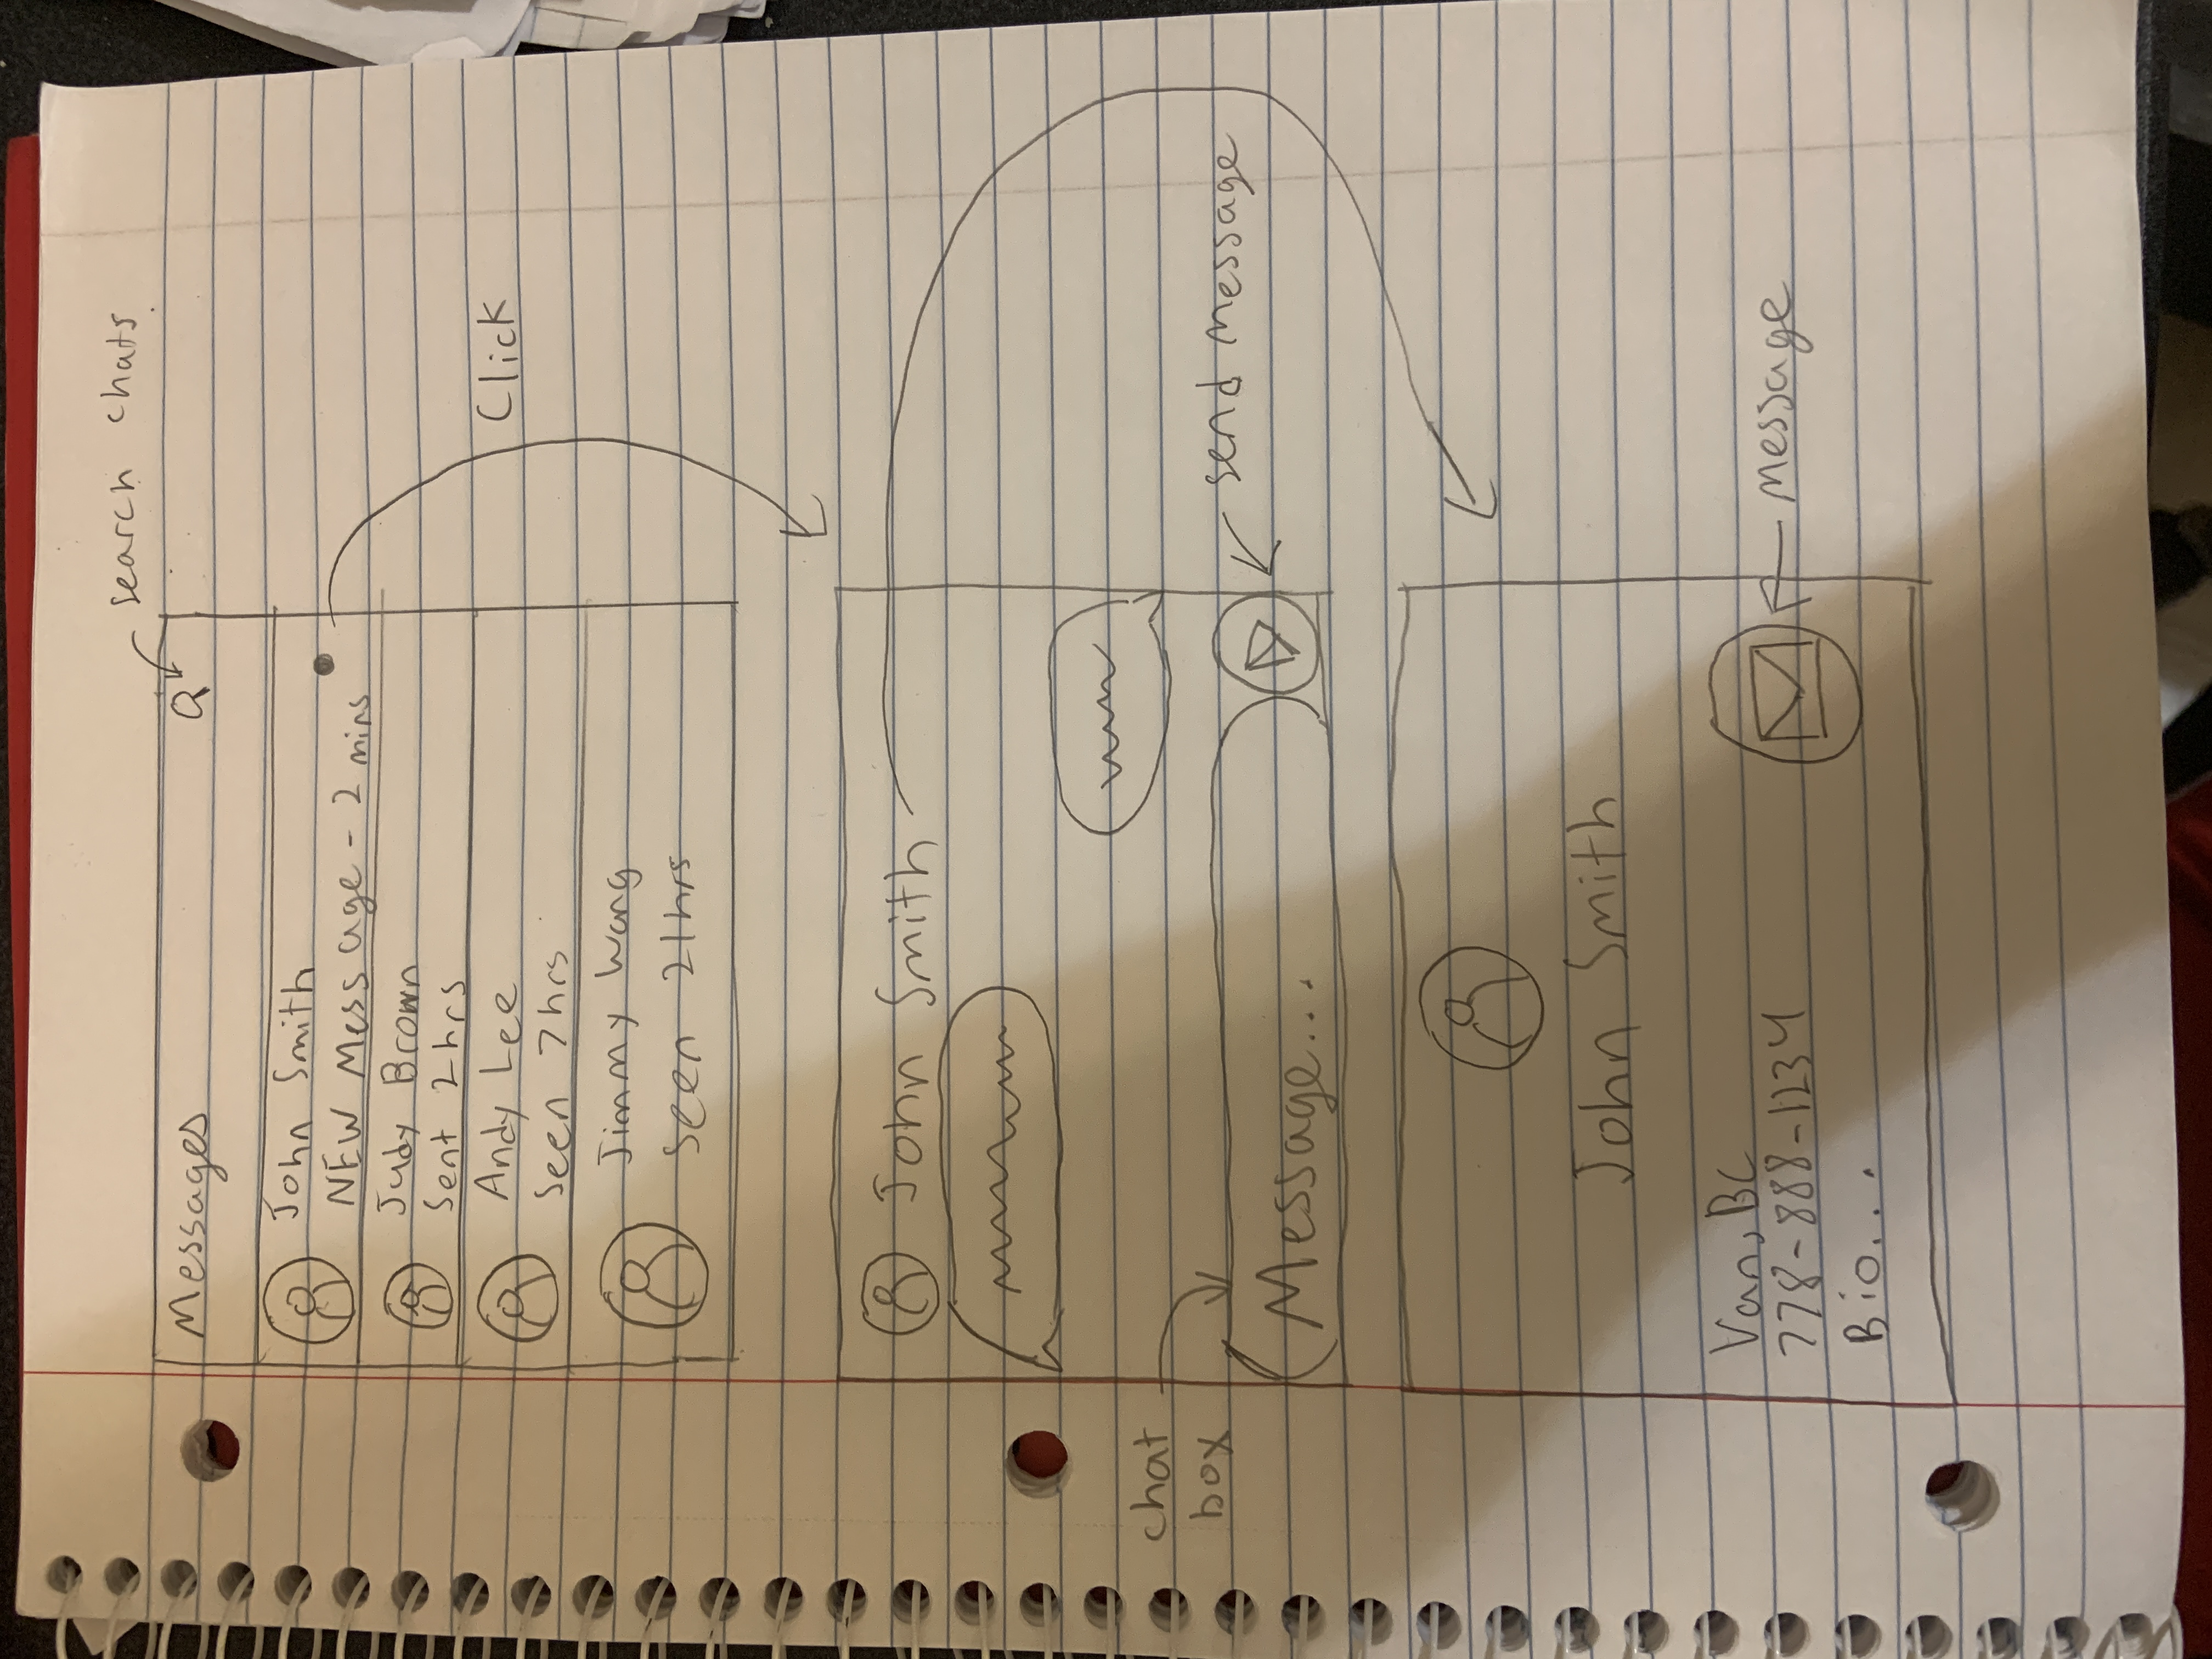 search chats
Messages
John Smith
NEW Message - 2 mins
Judy Brown
Sent 2hrs
Andy Lee
Seen 7hrs
Jimmy Wong
Seen 21hrs
Click
John Smith
chat
box
send message
Message...
John Smith
Van, BC
778-888-1234
Bio...
message